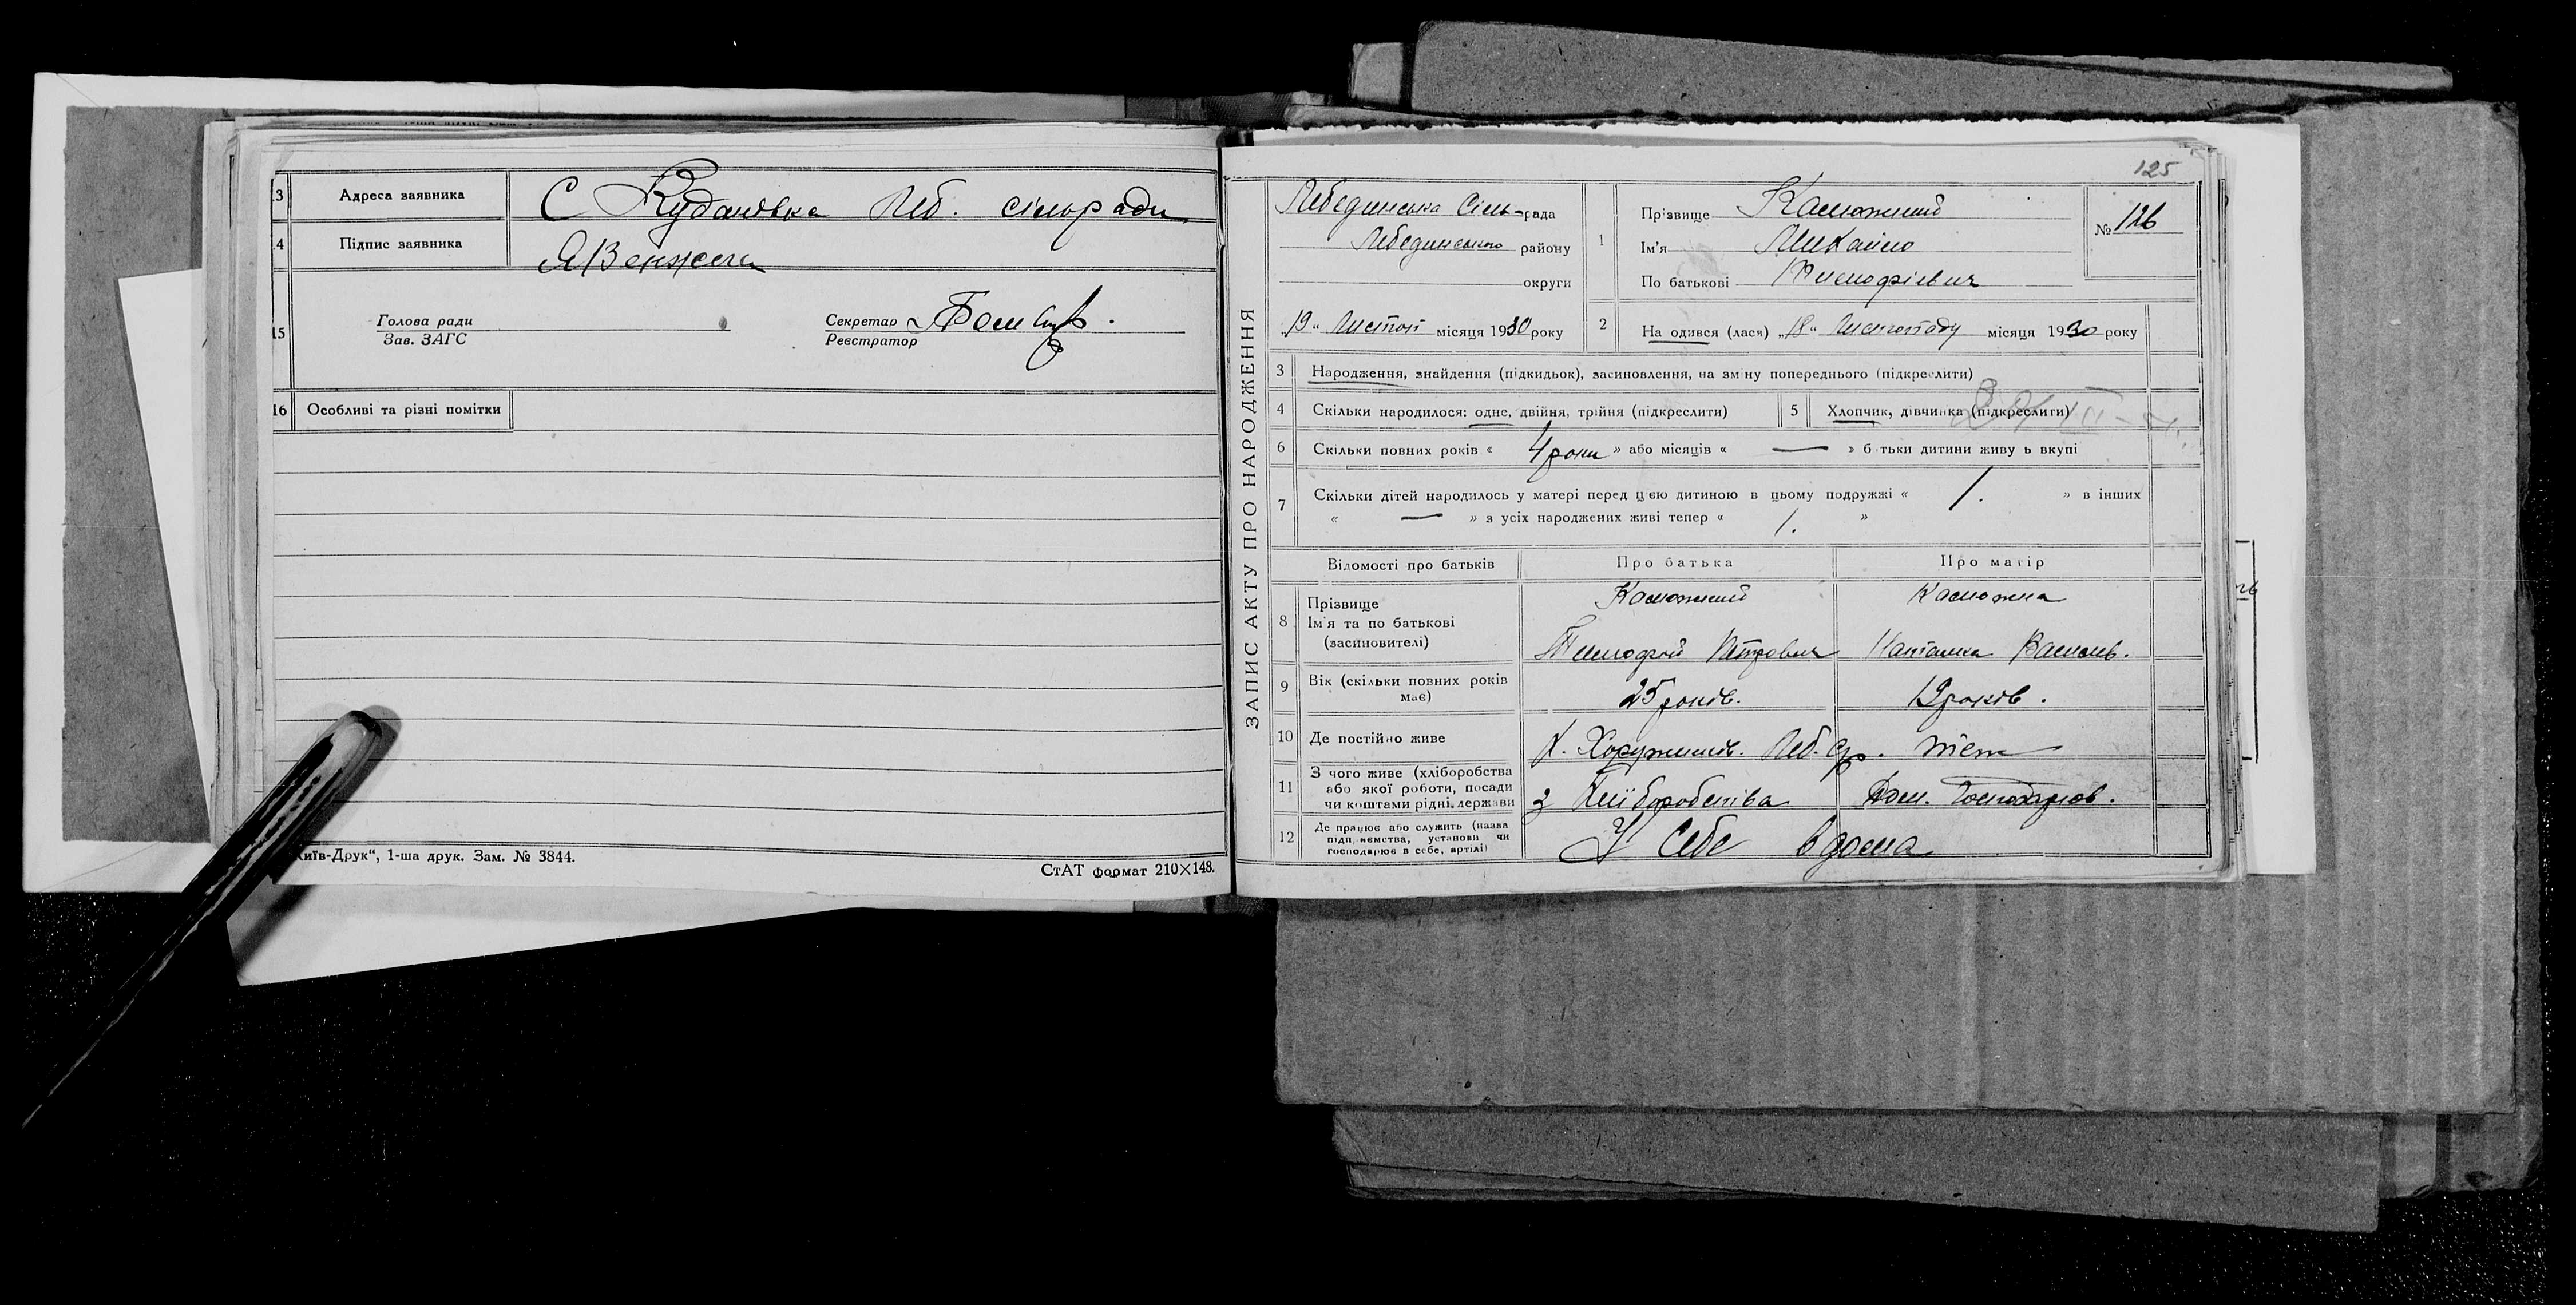 13 Адреса заявника С Кудановка Леб. сільради
14 Підпис заявника
15 Голова ради
Зав. ЗАГС
Секретар
Реєстратор
16 Особливі та різні помітки
Київ-Друк“, 1-ша друк. Зам. № 3844.
СтАТ формат 210×148.
125
ЗАПИС АКТУ ПРО НАРОДЖЕННЯ
Лебединська Сіль-рада
Лебединського району
округи
19 „ Листоп місяця 1930 року
1 Прізвище Калюжний
Ім'я Михайло
По батькові Тимофієвич
№ 126
2 На одився (лася) „ 18 “ Листопаду місяця 1930 року
3 Народження, знайдення (підкидьок), засиновлення, на зміну попереднього (підкреслити)
4 Скільки народилося: одне, двійня, трійня (підкреслити)
5 Хлопчик, дівчинка (підкреслити)
6 Скільки повних років « 4 роки » або місяців « — » б тьки дитини живу ь вкупі
7 Скільки дітей народилось у матері перед цією дитиною в цьому подружжі « 1. » в інших
« — » з усіх народжених живі тепер « 1. »
Відомості про батьків Про батька Про матір
8 Прізвище Калюжний Калюжна
Ім'я та по батькові
(засиновителі) Тимофій Петрович Наталка Василів.
9 Вік (скільки повних років має) 25 років. 19 років.
10 Де постійно живе Х. Хоружилів. Леб. ср. теж
11 З чого живе (хліборобства
або якої роботи, посади
чи коштами рідні, держави
з Хліборобства Дом. Господарюв.
12 Де працює або служить (назва
підп иємства, установи чи
господарює в себе, артілі)
У себе вдома